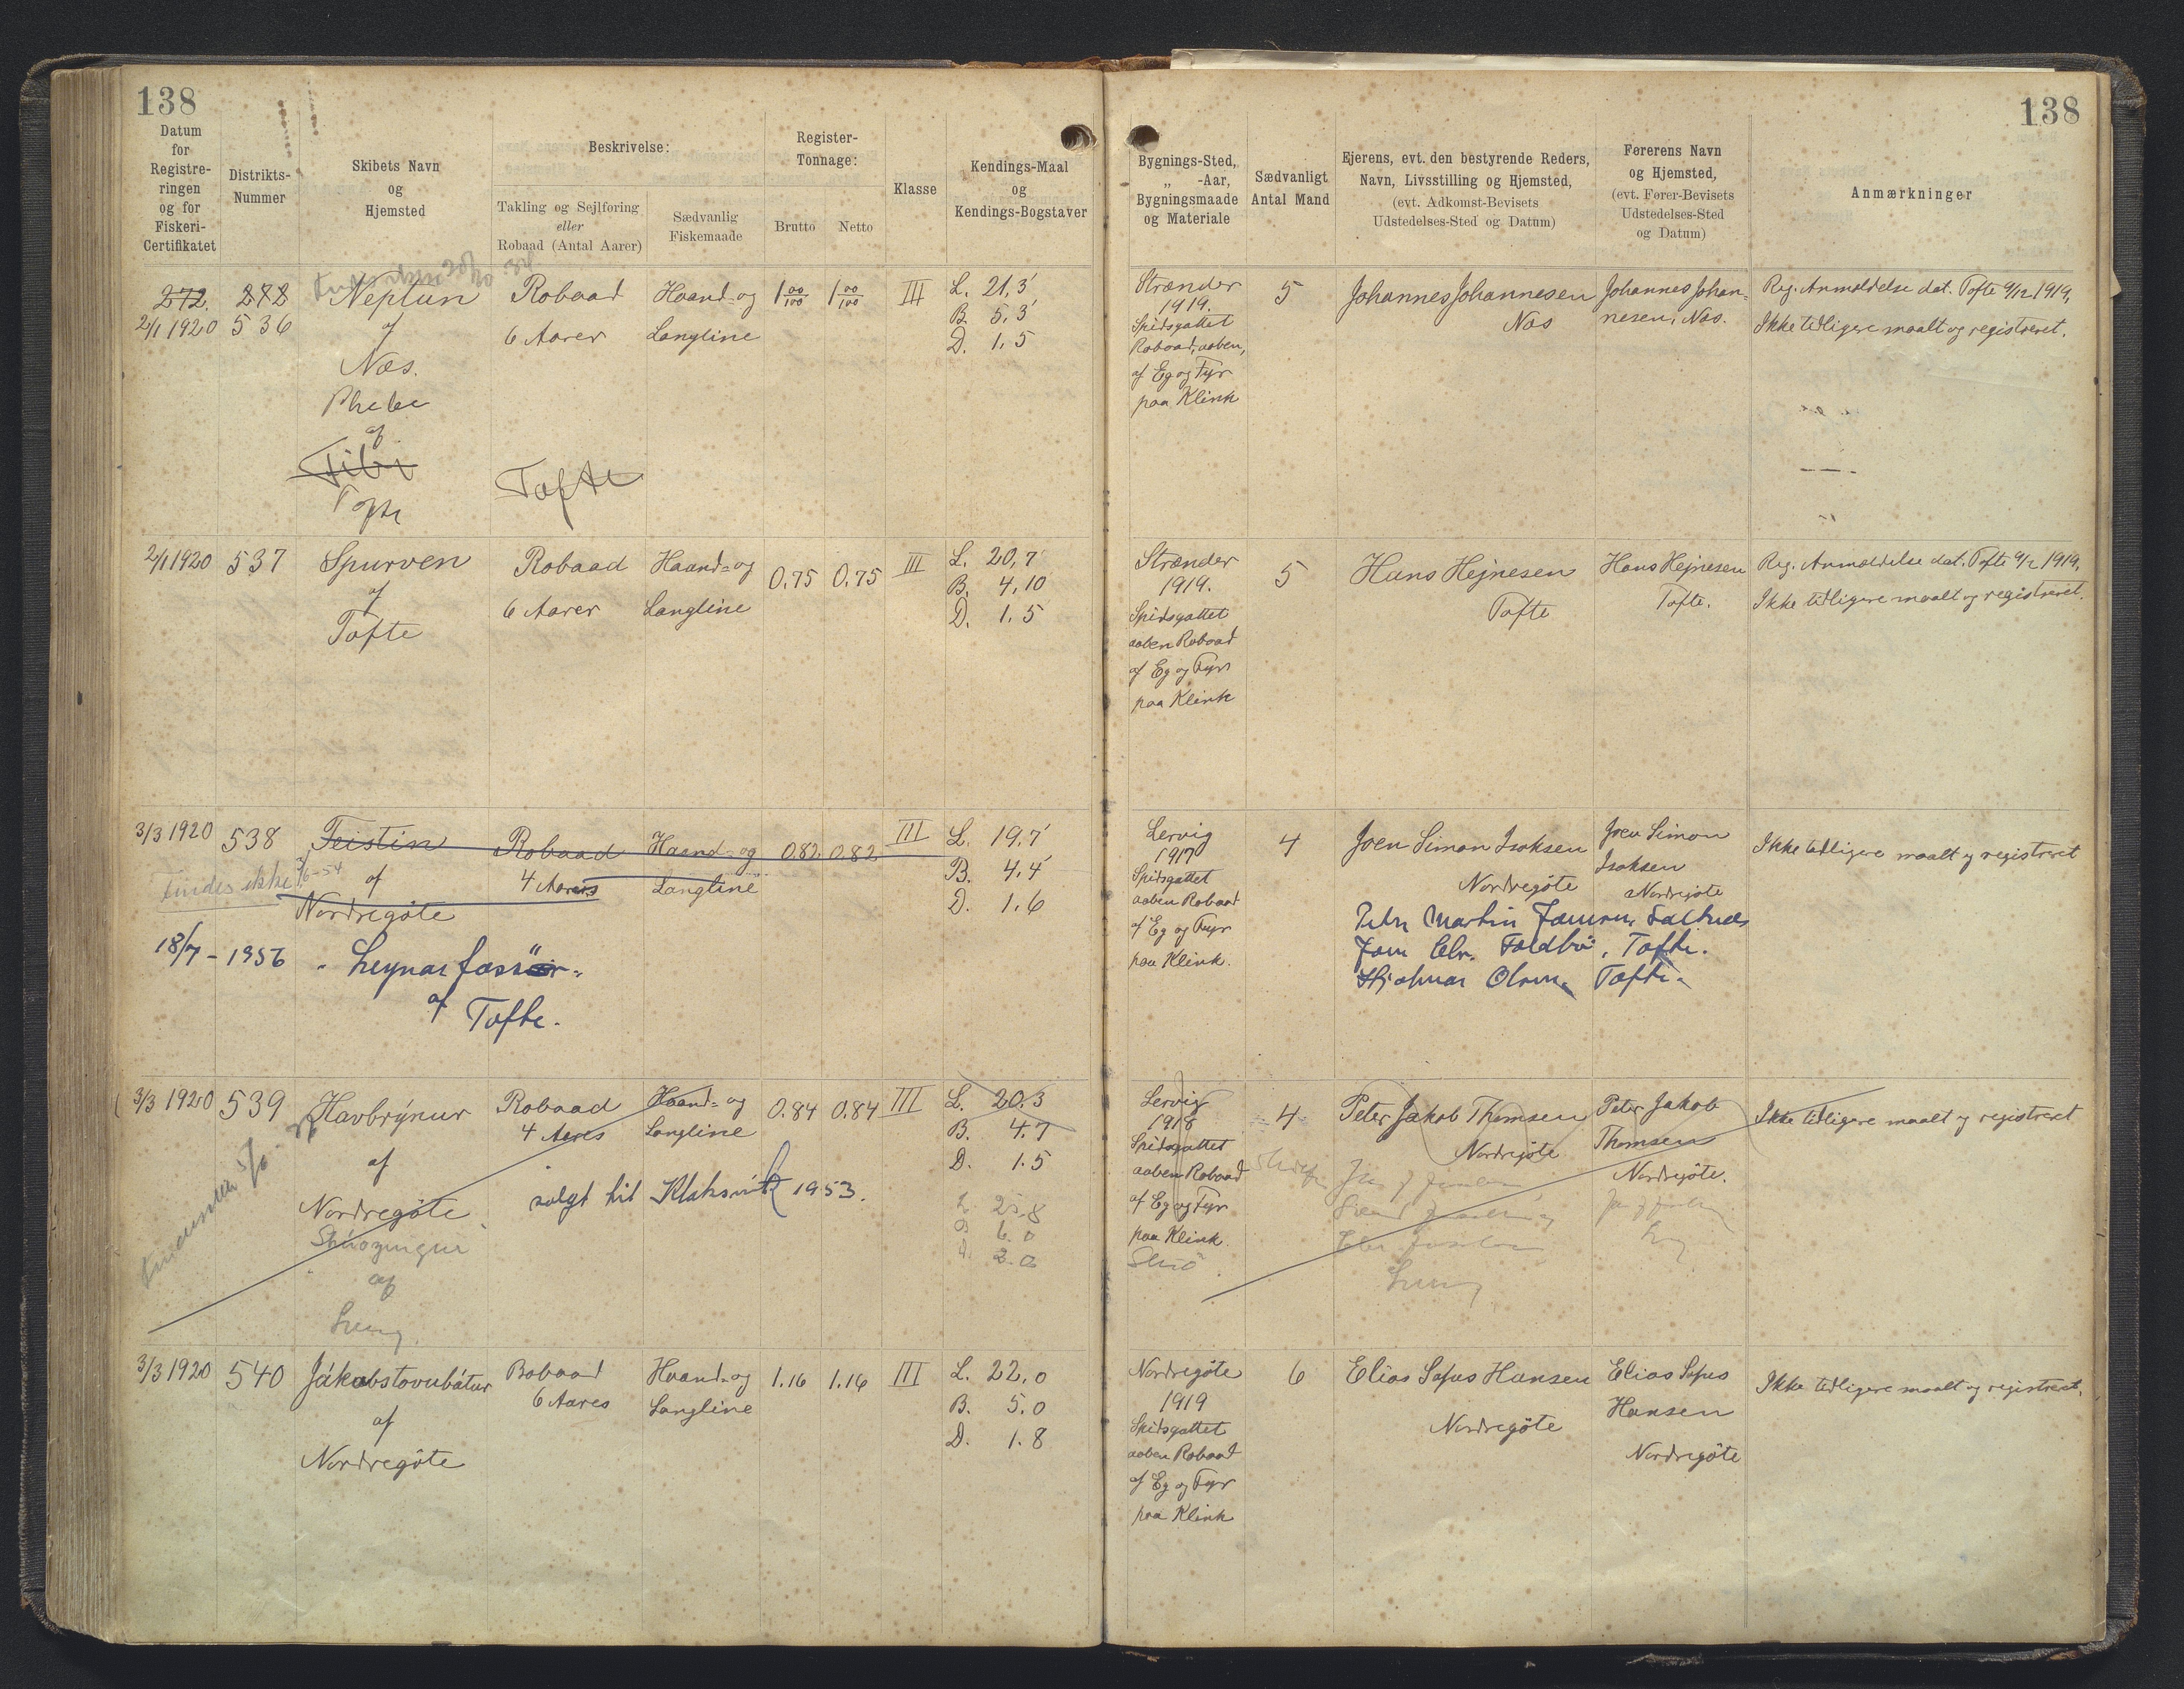 138
Datum
for
Registre-
ringen
og for
Fiskeri-
Certifikatet
Distrikts-
Nummer
Skibets Navn
og
Hjemsted
Beskrivelse:
Takling og Sejlføring
eller
Robaad (Antal Aarer)
Sædvanlig
Fiskemaade
Register-
Tonnage:
Brutto
Netto
Klasse
Kendings-Maal
og
Kendings-Bogstaver
272.
2/1 1920
282
536
Neptun
af
Næs.
Phebe
af
Tibi
Tofte
Robaad
6 Aarer
Tofte
Haand- og
Langline
1 00/100
1 00/100
III
L. 21,3'
B. 5,3'
D. 1,5
2/1 1920
537
Spurven
af
Tofte
Robaad
6 Aarer
Haand- og
Langline
0.75
0.75
III
L. 20,7
B. 4,10
D. 1.5
3/3 1920
538
Findes ikke
6-54
18/7 - 1956
Teistin
af
Nordregöte
af Tofte.
Robaad
4 Aarer
Haand- og
Langline
0.82
0.82
III
L. 19,7'
B. 4,4'
D. 1.6
3/3 1920
539
Havbrýnur
af
Nordregöte
af
Robaad
4 Aares
Haand- og
Langline
solgt til Klaksvik 1953.
0.84
0.84
III
L. 20.3
B. 4.7
D. 1.5
L 25.8
B 6.0
D. 2.0
3/3 1920
540
Jákobstovubátur
af
Nordregöte
Robaad
6 Aares
Haand- og
Langline
1.16
1.16
III
L. 22,0
B. 5.0
D. 1.8
138
Bygnings-Sted,
„ -Aar,
Bygningsmaade
og Materiale
Sædvanligt
Antal Mand
Ejerens, evt. den bestyrende Reders,
Navn, Livsstilling og Hjemsted,
(evt. Adkomst-Bevisets
Udstedelses-Sted og Datum)
Førerens Navn
og Hjemsted,
(evt. Fører-Bevisets
Udstedelses-Sted
og Datum)
Anmærkninger
Strænder
1919.
Spidsgattet
Robaad, aaben,
af Eg og Fyr
paa Klink
5
Johannes Johannesen
Næs
Johannes Johan-
nesen, Næs.
Reg. Anmeldelse dat. Tofte 9/12 1919,
Ikke tidligere maalt og registreret.
Strænder
1919.
Spidsgattet
aaben Robaad
af Eg og Fyr
paa Klink
5
Hans Hejnesen
Tofte
Hans Hejnesen
Tofte.
Reg. Anmeldelse dat. Tofte 9/12 1919,
Ikke tidligere maalt og registreret.
Lervig
1917
Spidsgattet
aaben Robaad
af Eg og Fyr
paa Klink.
4
Joen Simon Isaksen
Nordregöte
Joen Simon
Isaksen
Nordregöte
Hjalmar Olsen, Tofte.
Ikke tidligere maalt og registreret
Lervig
1918
Spidsgattet
aaben Robaad
af Eg og Fyr
paa Klink.
4
Peter Jakob Thomsen
Nordregöte
Peter Jakob
Thomsen
Nordregöte.
Ikke tidligere maalt og registreret
Nordregöte
1919
Spidsgattet
aaben Robaad
af Eg og Fyr
paa Klink
6
Elias Sofus Hansen
Nordregöte
Elias Sofus
Hansen
Nordregöte
Ikke tidligere maalt og registreret.